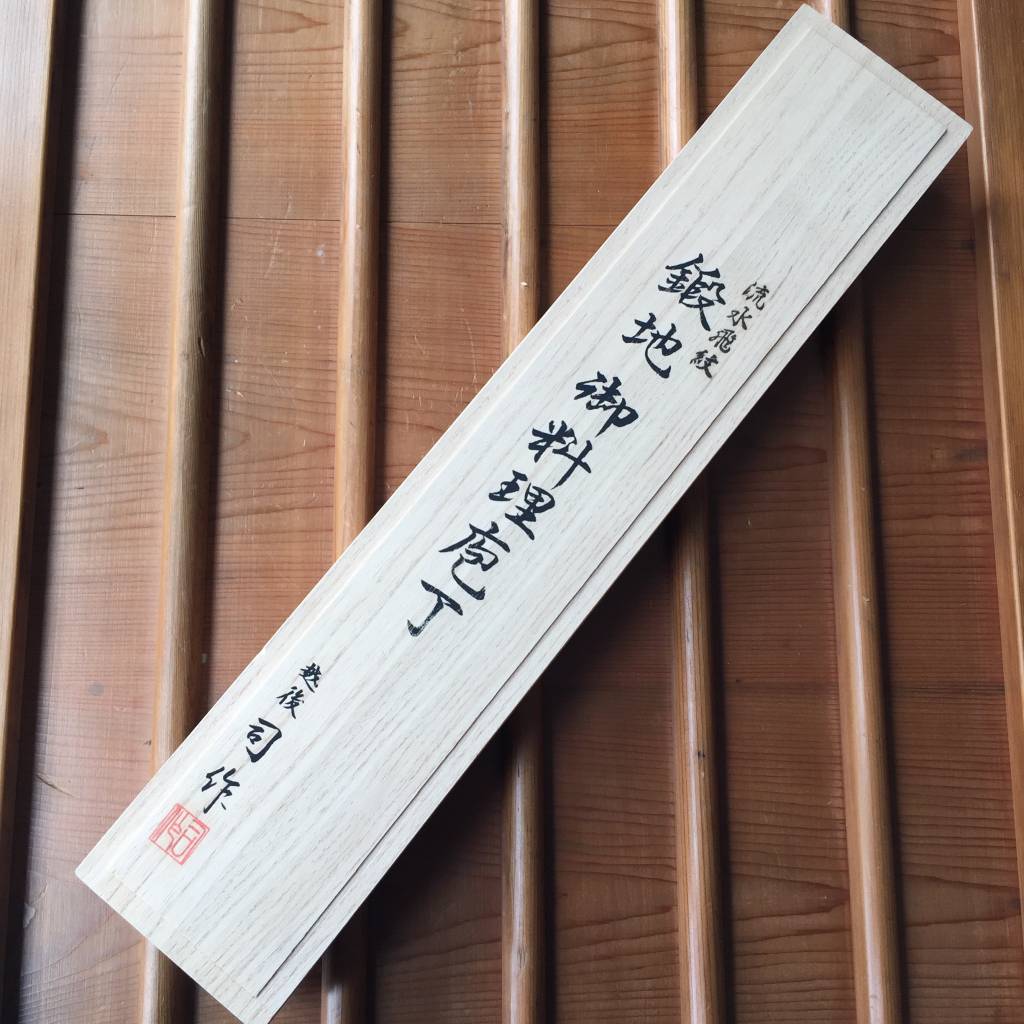 流水飛紋
鍛地御料理庖丁
越後司作